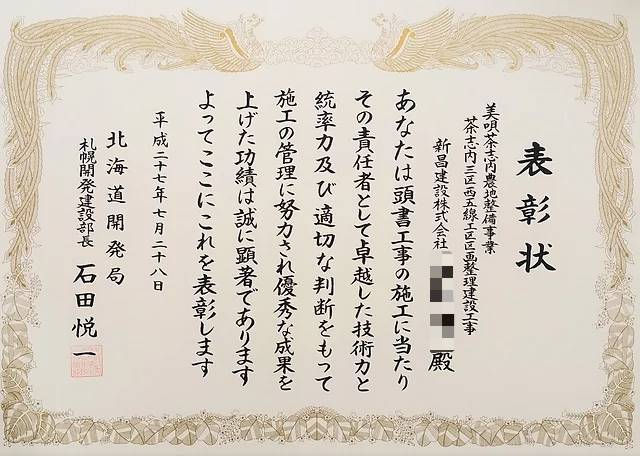 表彰状
美唄茶志内農地整備事業
茶志内三区西五線工区区画整理建設工事
新昌建設株式会社
殿
あなたは頭書工事の施工に当たり
その責任者として卓越した技術力と
統率力及び適切な判断をもって
施工の管理に努力され優秀な成果を
上げた功績は誠に顕著であります
よってここにこれを表彰します
平成二十七年七月二十八日
北海道開発局
札幌開発建設部長
石田悦一